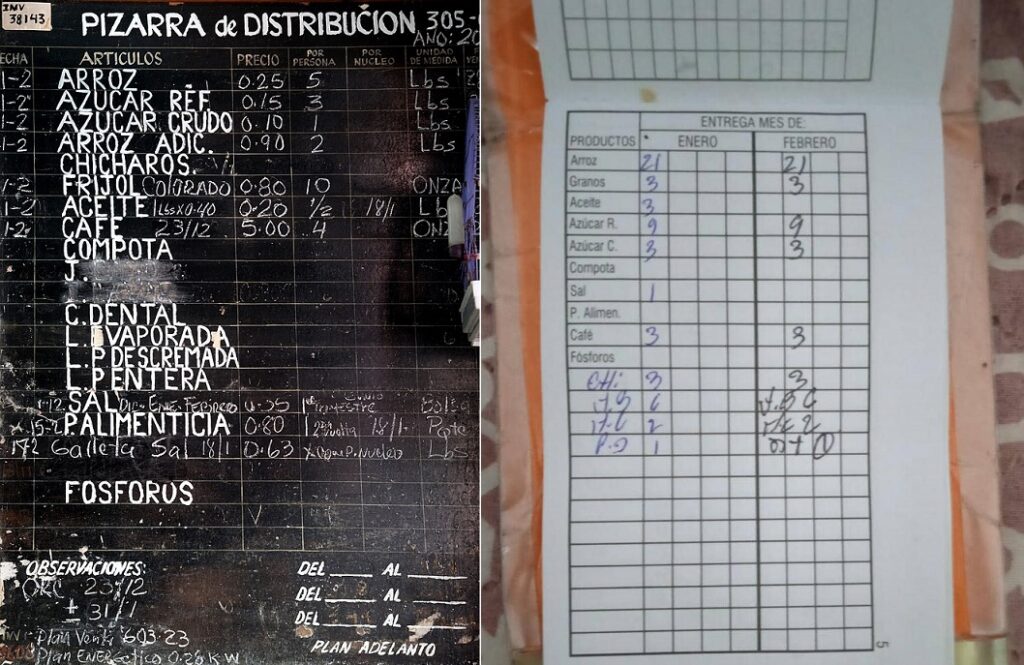 INV
38143
PIZARRA de DISTRIBUCION 305-
AÑO: 20
ECHA ARTICULOS PRECIO POR PERSONA POR NUCLEO UNIDAD DE MEDIDA VEN
1-2 ARROZ 0.25 5 Lbs
1-2 AZUCAR REF. 0.15 3 Lbs
1-2 AZUCAR CRUDO 0.10 1 Lbs
1-2 ARROZ ADIC. 0.90 2 Lbs
CHICHAROS
1-2 FRIJOL COlORADO 0.80 10 ONZA
1-2 ACEITE 1Lbsx0.40 0.20 1/2 18/1 Lb
1-2 CAFE 23/12 5.00 4 ONZ
COMPOTA
J.
C. DENTAL
L. EVAPORADA
L. P DESCREMADA
L. P ENTERA
1-12 SAL Dic. ENE. FEBRERO 0.35 Bolsa
15-2 P.ALIMENTICIA 0.80 vuelta 18/1 Pqte
172 Galleta Sal 18/1 0.63 Lbs
FOSFOROS
OBSERVACIONES: DEL AL
23/12 DEL AL
± 31/1 DEL AL
Plan Venta 603.23 PLAN ADELANTO
Plan ENERgetico 0.26 KW
ENTREGA MES DE:
PRODUCTOS ENERO FEBRERO
Arroz 21 21
Granos 3 3
Aceite 3
Azúcar R. 9 9
Azúcar C. 3 3
Compota
Sal 1
P. Alimen.
Café 3 3
Fósforos
3 3
6 6
2 2
1 1
5